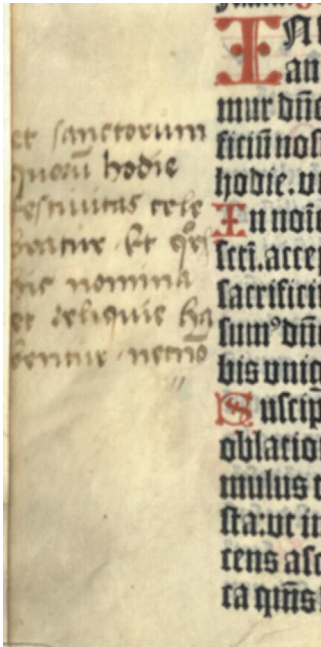 et sanctorum
quorū hodie
festiuitas cele
bratur. Et qͦꝝ
hic nomina
et reliquie ha
bentur. necnō
In
an
mur dn̄e
ficiū nos
hodie. vt
In noīe
sctī. accep
sacrificiū
sumꝰ dn̄e
bis vnig
Suscip
oblatio
mulus t
sta: vt in
cens asc
ca qm̄s